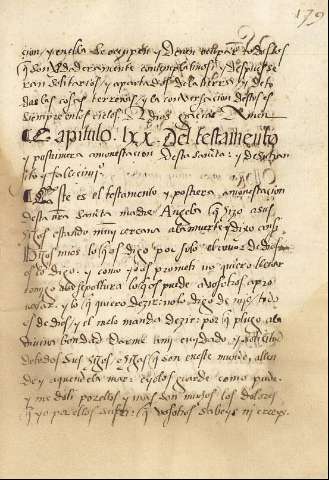 179
cion, y en ella se reciben y deven ocupar todos los
q̃ son verdaderamente contemplativos, y despues se
ran solitarios y apartados de la tierra y de to
das las cosas terrenas, y la conversacion destos es
siempre en los cielos. A dios gracias Amen
Capitulo. lxx. Del testamento
y postrimera amonestacion desta sancta: y de su tran
sito y
Este es el testamento y postrera amonestacion
desta nra̅ sancta madre Angela la q̃ hizo a sus
hijos estando muy cercana a la muerte y dixo ansi.
Hijos mios lo q̃ os digo por solo el amor de dios
os lo digo. y como yo os prometi no quiero llevar
comigo a la sepoltura lo q̃ os puede a vosotros apro
vechar. y lo q̃ quiero dezir: no lo digo de mi, todo
es de dios, y el me lo manda dezir: por q̃ plugo a la
divina bondad darme tan cuydado y solicitud
de todos sus hijos e hijas q̃ son en este mundo, allen
de y aquende la mar: e yo los guarde como pude.
y me doli por ellos y mas son muchos los dolores
q̃ yo por ellos sufri: q̃ vosotros sabeys ni creeys.